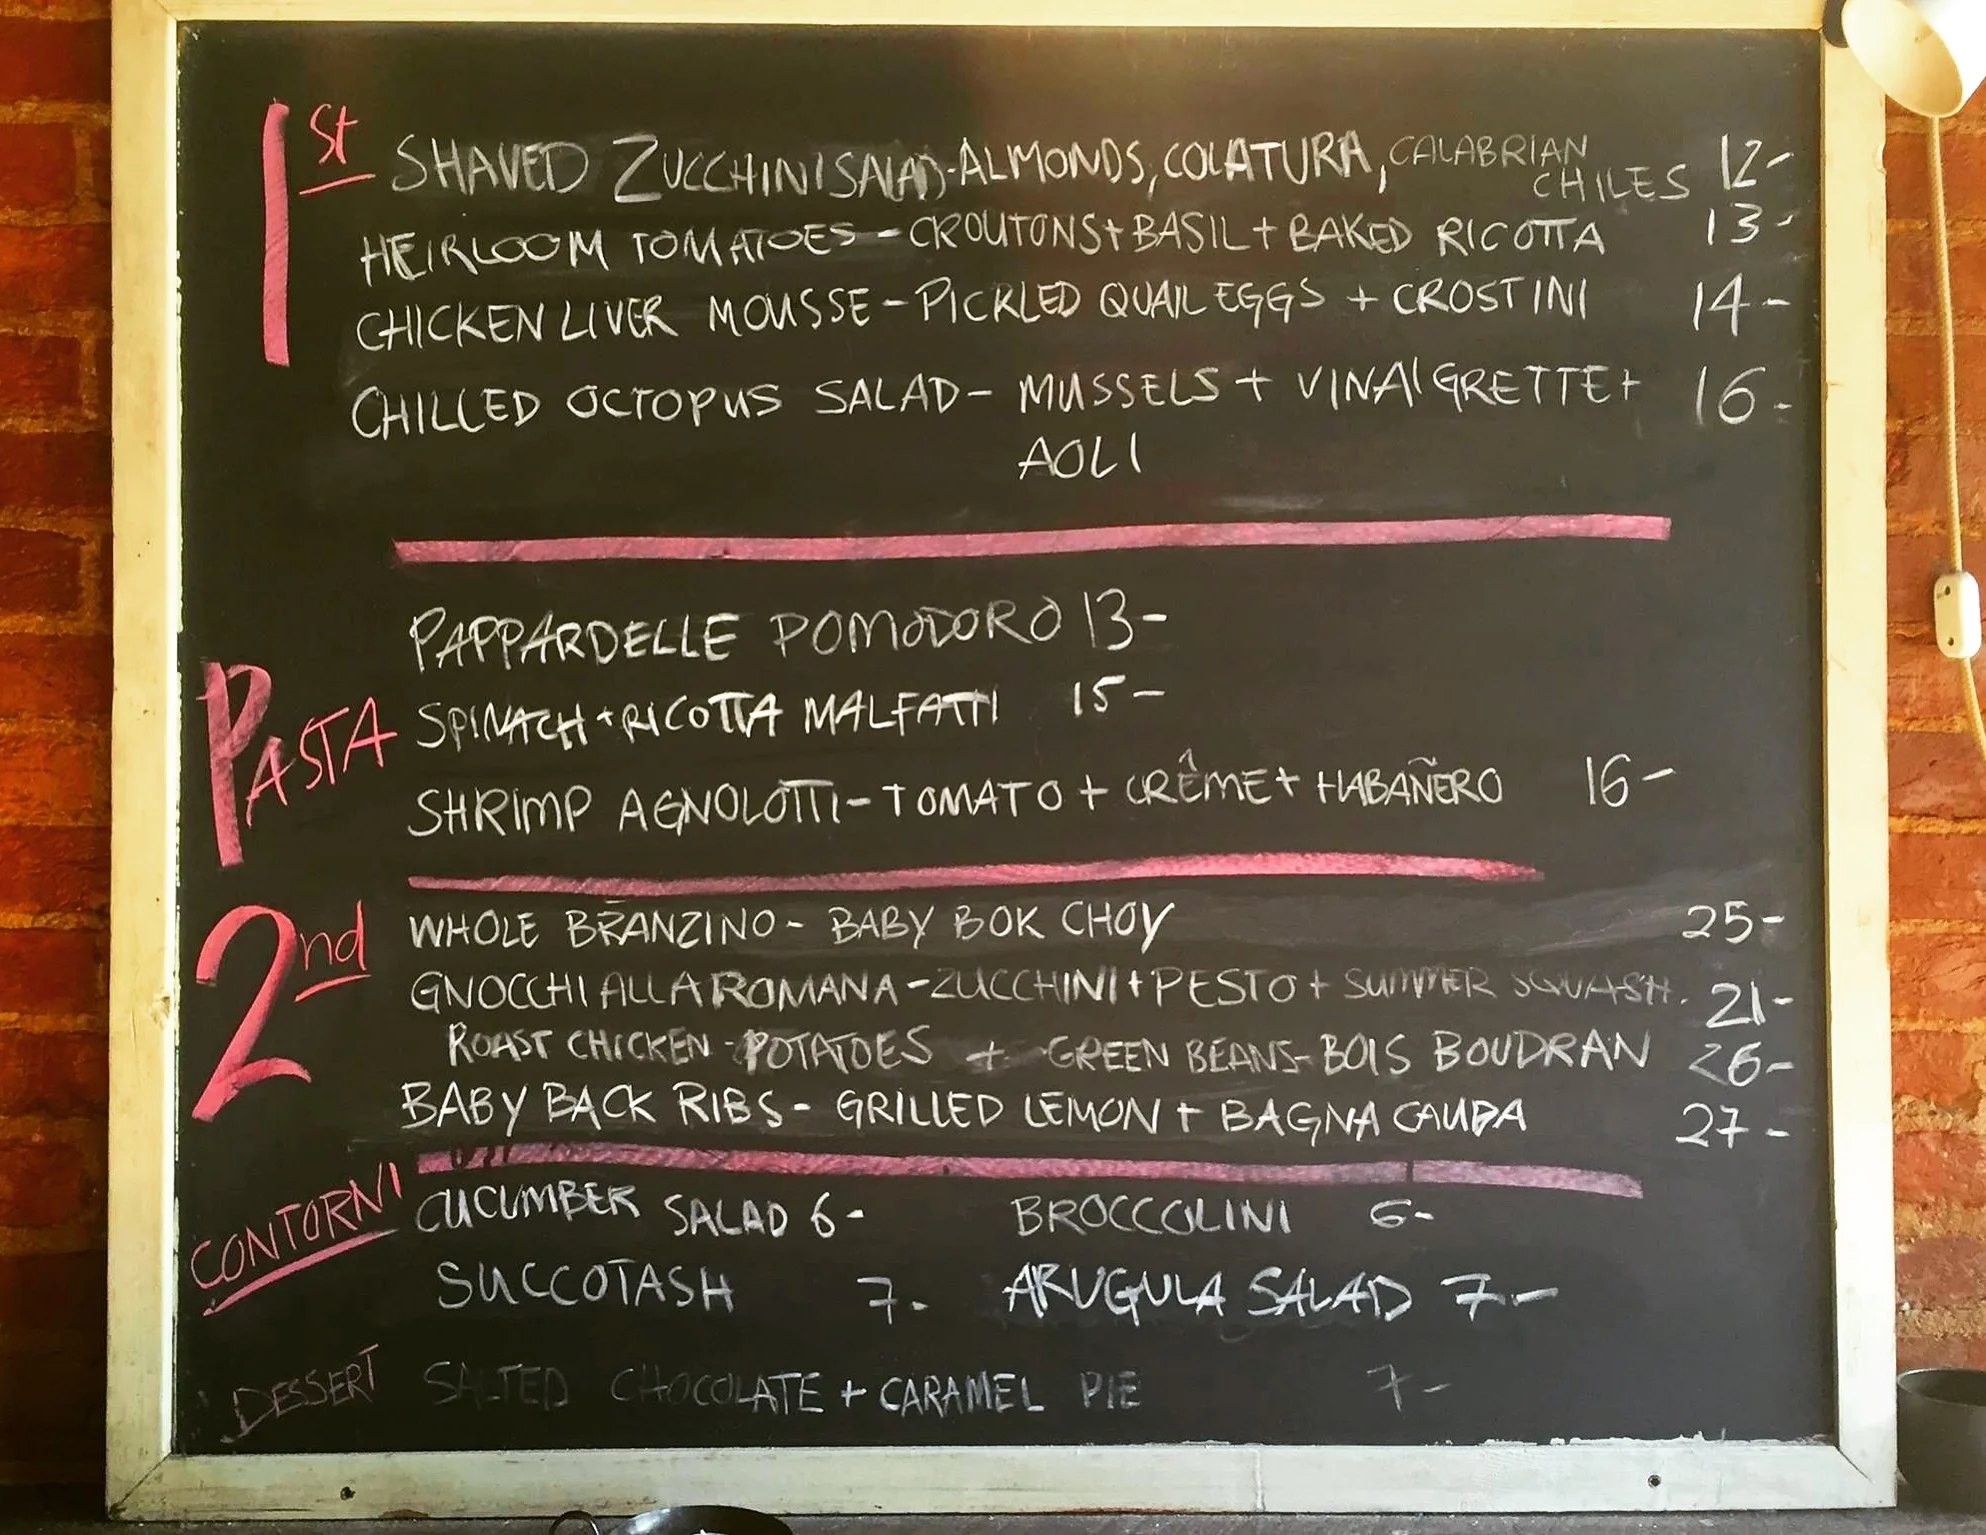 1st
SHAVED ZUCCHINI SALAD - ALMONDS, COLATURA, CALABRIAN CHILES 12-
HEIRLOOM TOMATOES - CROUTONS + BASIL + BAKED RICOTTA 13-
CHICKEN LIVER MOUSSE - PICKLED QUAIL EGGS + CROSTINI 14-
CHILLED OCTOPUS SALAD - MUSSELS + VINAIGRETTE + 16-
AOLI
PASTA
PAPPARDELLE POMODORO 13-
SPINACH + RICOTTA MALFATTI 15-
SHRIMP AGNOLOTTI - TOMATO + CRÊME + HABAÑERO 16-
2nd
WHOLE BRANZINO - BABY BOK CHOY 25-
GNOCCHI ALLA ROMANA - ZUCCHINI + PESTO + SUMMER SQUASH. 21-
ROAST CHICKEN - POTATOES + GREEN BEANS - BOIS BOUDRAN 26-
BABY BACK RIBS - GRILLED LEMON + BAGNA CAUDA 27-
CONTORNI
CUCUMBER SALAD 6- BROCCOLINI 6-
SUCCOTASH 7- ARUGULA SALAD 7-
DESSERT SALTED CHOCOLATE + CARAMEL PIE 7-